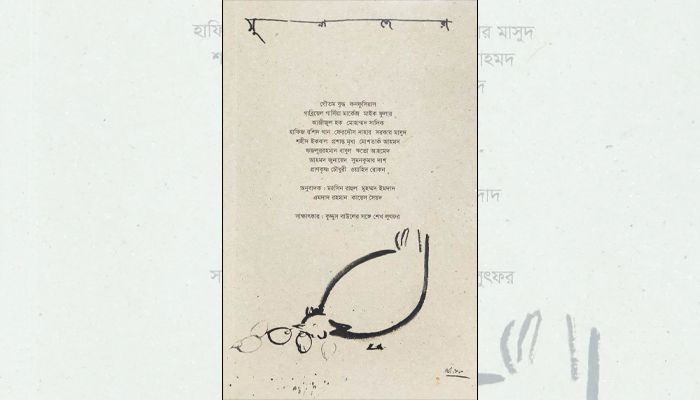 গৌতম বুদ্ধ কনফুসিয়াস
গাব্রিয়েল গার্সিয়া মার্কেজ মাইক ফুলার
আজীজুল হক মোহাম্মদ সাদিক
হাফিজ রশিদ খান ফেরদৌস নাহার সরকার মাসুদ
শহীদ ইকবাল প্রশান্ত মৃধা মোশতাক আহমদ
ফজলুররহমান বাবুল ঋতো আহমেদ
আহমদ জুনায়েদ সুমনকুমার দাশ
প্রাণকৃষ্ণ চৌধুরী ওয়াহিদ রোকন
অনুবাদক : মহসিন রাহুল মুহম্মদ ইমদাদ
এমদাদ রহমান কায়েস সৈয়দ
সাক্ষাৎকার : কুদ্দুস বাউলের সঙ্গে শেখ লুৎফর